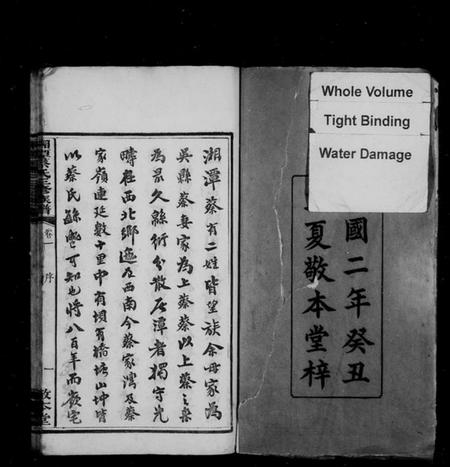 Whole Volume
Tight Binding
Water Damage
國二年癸丑
夏敬本堂梓
湘潭蔡有二姓皆望族余母家為
吳縣蔡妻家為上蔡蔡以上蔡之來
為最久緜衍分散居潭者獨守先
疇在西北鄉迤及西南今蔡家灣及蔡
家嶺連延數十里中有壩有橋塘山坤皆
以蔡氏縣
可知也將八百年而襄宅
卷一
序
一
敬本堂